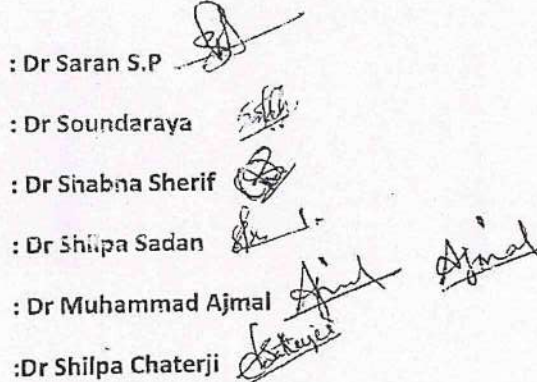 : Dr Saran S.P
: Dr Soundaraya
: Dr Shabna Sherif
: Dr Shilpa Sadan
: Dr Muhammad Ajmal Ajmal Ajmal
:Dr Shilpa Chaterji